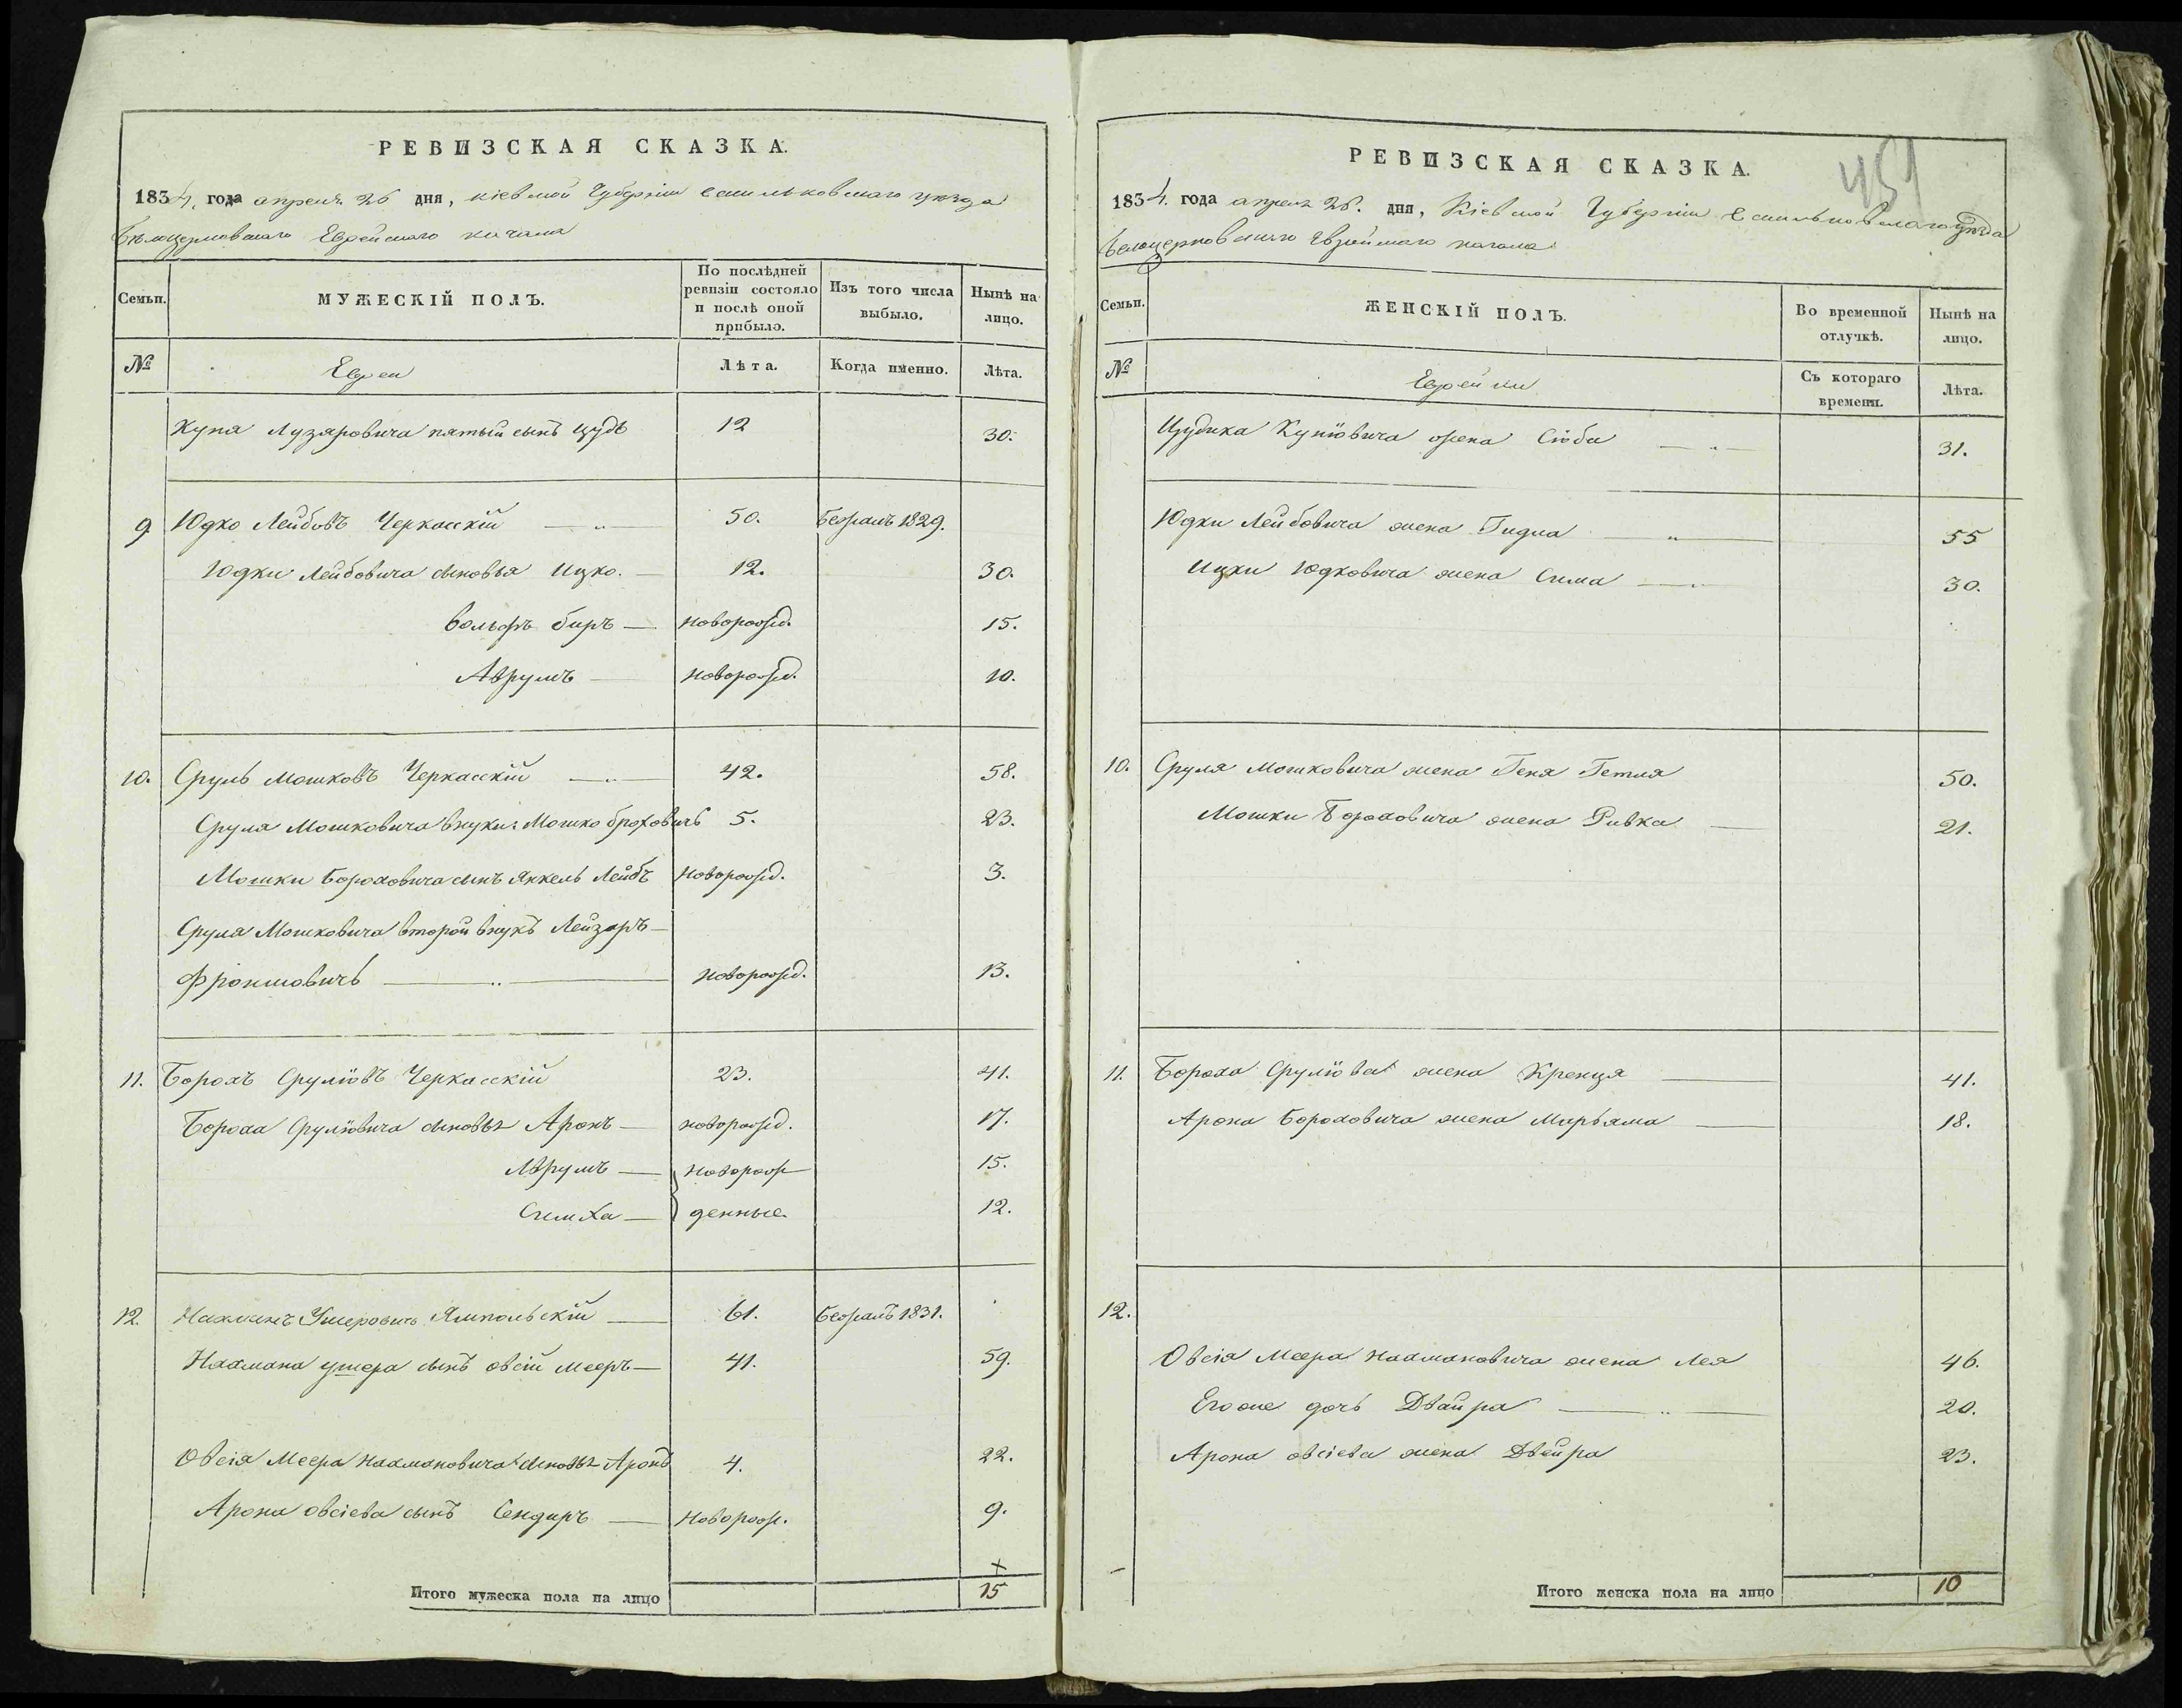 РЕВИЗСКАЯ СКАЗКА.
1834. года апреля 26 дня, Кіевской Губерніи Васильковскаго уѣзда
Бѣлоцерковскаго Еврейскаго кагала
Семьи. МУЖЕСКІЙ ПОЛЪ. По послѣдней ревизіи состояло и послѣ оной прибыло. Изъ того числа выбыло. Нынѣ на лицо.
№ Евреи Лѣта. Когда именно. Лѣта.
Куня Лузаровича пятый сынъ Цудь 12 30.
9 Юдко Лейбовъ Черкасскій 50. Бежалъ 1829.
Юдки Лейбовича сыновья Ицко. 12. 30.
Вольфъ Беръ новорожд. 15.
Аврумъ новорожд. 10.
10. Сруль Мошковъ Черкасскій 42. 58.
Сруля Мошковича внуки: Мошко Броховичъ 5. 23.
Мошки Бороховича сынъ Янкель Лейбъ новорожд. 3.
Сруля Мошковича второй внукъ Лейзоръ
Фроимовичъ новорожд. 13.
11. Борохъ Сруліовъ Черкасскій 23. 41.
Бороха Сруліовича сыновья Аронъ новорожд. 17.
Аврумъ новорож 15.
Симха денные 12.
12. Нахманъ Умеровичъ Ямпольскій 61. Бежалъ 1831.
Нахмана умера сынъ Овсій Мееръ 41. 59.
Овсія Меера Нахмановича сыновья Аронъ 4. 22.
Арона овсіева сынъ Сендеръ новорож. 9.
Итого мужеска пола на лицо 15
451
РЕВИЗСКАЯ СКАЗКА.
1834. года апреля 26. дня, Кіевской Губерніи Васильковскаго уѣзда
Белоцерковскаго Еврейскаго кагала
Семьи. ЖЕНСКІЙ ПОЛЪ. Во временной отлучкѣ. Нынѣ на лицо.
№ Еврейки Съ котораго времени. Лѣта.
Цудика Куніовича жена Сіоба 31.
Юдки Лейбовича жена Гидла 55
Ицки Юдковича жена Сима 30.
10. Сруля Мошковича жена Геня Гетля 50.
Мошки Бороховича жена Ривка 21.
11. Бороха Сруліова жена Кренця 41.
Арона Бороховича жена Марьяма 18.
12.
Овсія Меера Нахмановича жена Лея 46.
Его же дочь Двайра 20.
Арона овсіева жена Двейра 23.
Итого женска пола на лицо 10